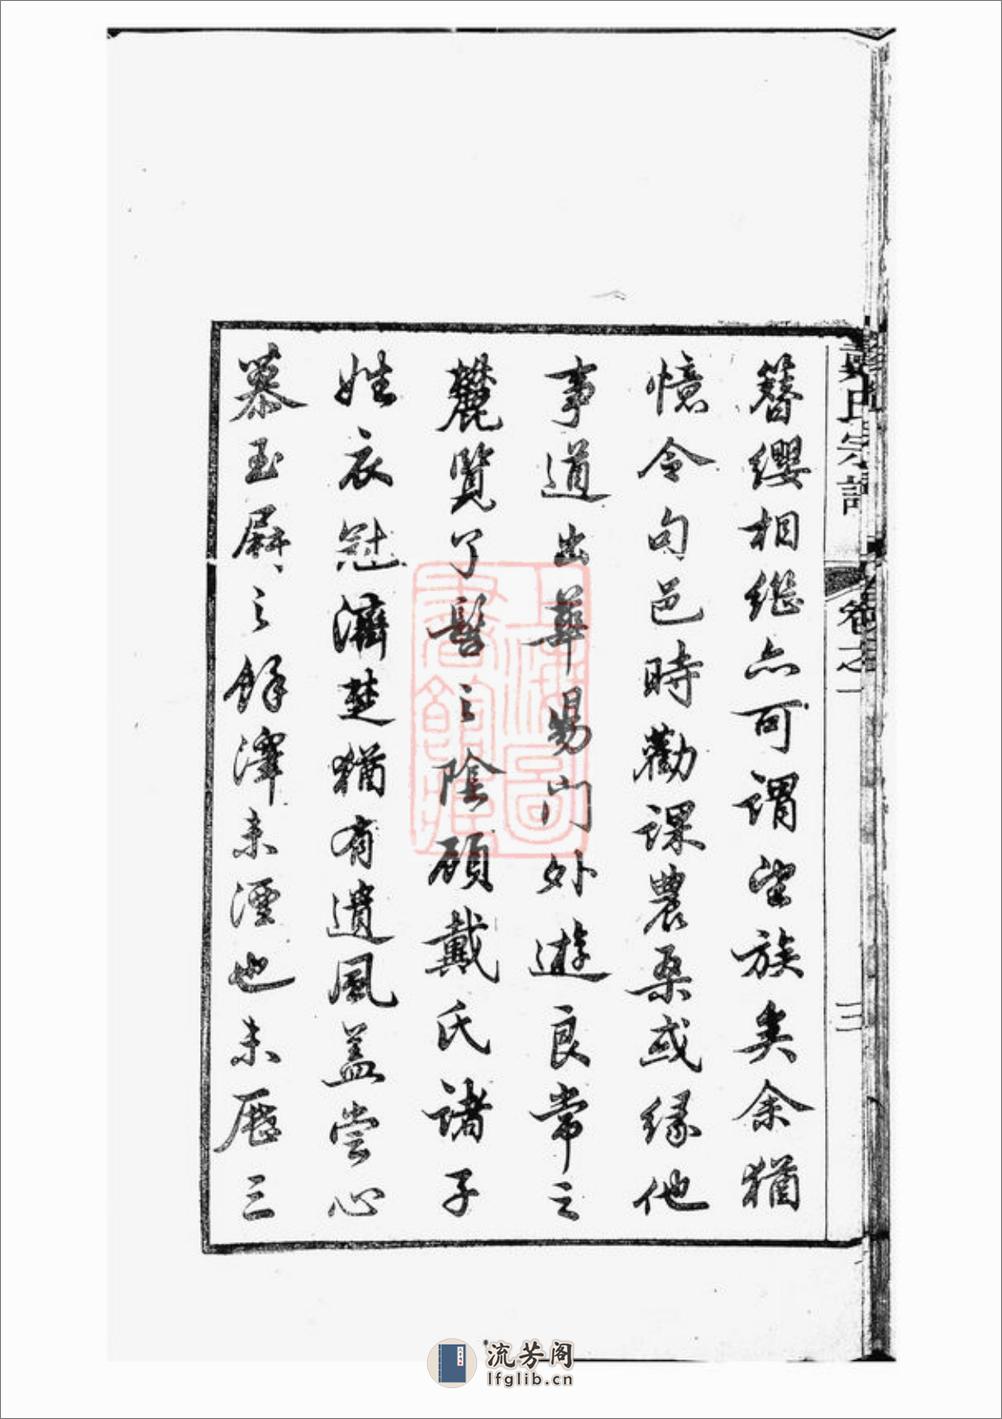 戴氏宗譜
卷之一
三
簪纓相繼亦可謂望族矣余猶
憶令句邑時勸課農桑或緣他
事道出華易門外遊良常之
麓覽了髻之陰顧戴氏諸子
姓衣冠濟楚猶有遺風蓋嘗心
慕玉屏之餘澤未湮也未歷三
上海圖書館藏
流芳阁
lfglib.cn